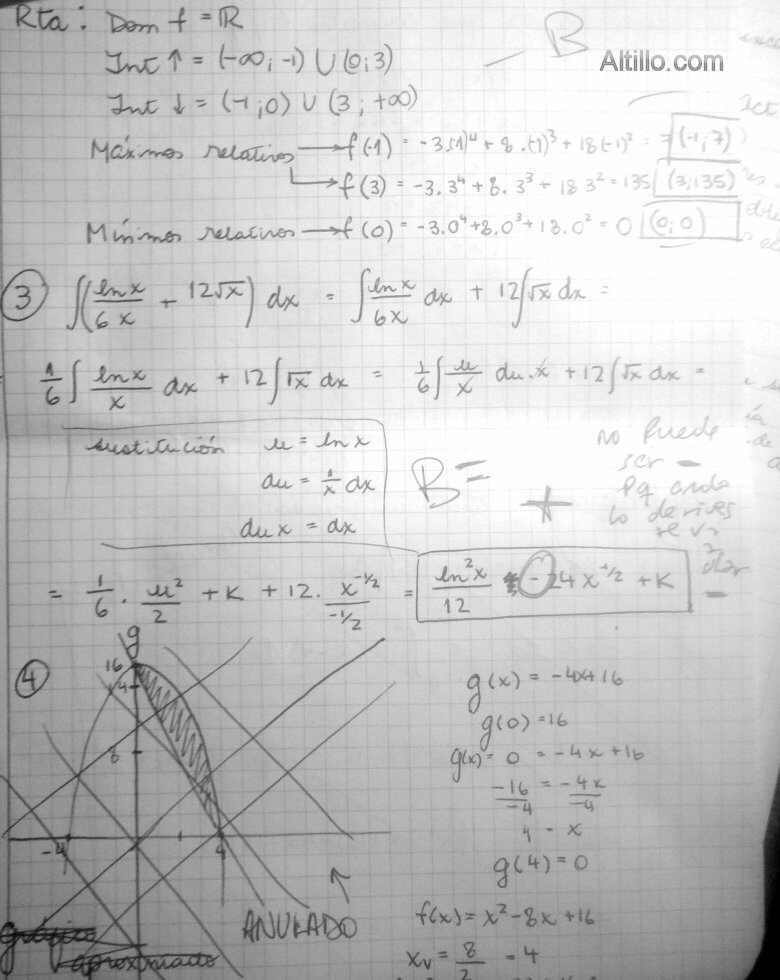 Rta: Dom f = ℝ
B
Altillo.com
Int ↑ = (-∞; -1) ∪ (0; 3)
Int ↓ = (-1; 0) ∪ (3; +∞)
Máximos relativos → f(-1) = -3(-1)⁴ + 8.(-1)³ + 18(-1)² = 7 (-1; 7)
→ f(3) = -3.3⁴ + 8.3³ + 18 3² = 135 (3; 135)
Mínimos relativos → f(0) = -3.0⁴ + 8.0³ + 18.0² = 0 (0; 0)
3 ∫(ln x / 6x + 12√x) dx = ∫ ln x / 6x dx + 12∫√x dx =
1/6 ∫ ln x / x dx + 12∫√x dx = 1/6 ∫ u/x du.x + 12∫√x dx =
sustitución u = ln x
du = 1/x dx
du x = dx
B
no puede
ser
pq cuando
lo derives
te va
= 1/6 . u²/2 + K + 12. x^(-1/2) / (-1/2) = ln²x / 12 - 24 x^(-1/2) + K
4
g
16
14
8
-4
1
4
g(x) = -4x+16
g(0) = 16
g(x) = 0 = -4x + 16
-16/-4 = -4x/-4
4 = x
g(4) = 0
ANULADO
f(x) = x² - 8x + 16
gráfico
aproximado
xv = 8/2 = 4